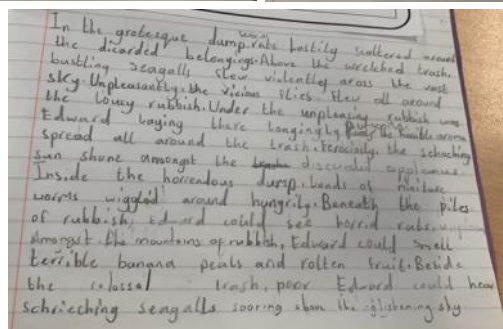 In the grotesque dump, rats hastily waltered around
the dicarded belongings. Above the wretched trash,
bustling seagalls flew violently aross the vast
sky. Unpleasantly, the vicious flies flew all around
the lousy rubbish. Under the unpleasing rubbish was
Edward laying there longingly. horrible aroma
spread all around the trash. Ferociously, the schoching
sun shone amongst the discarded appliances.
Inside the horrendous dump, loads of miniture
worms wiggled around hungrily. Beneath the piles
of rubbish, Edward could see horrid rats.
Amongst the mountains of rubbish, Edward could smell
terrible banana peals and rotten fruit. Beside
the colossal trash, poor Edward could hear
schrieching seagalls sooring above the glishening sky.